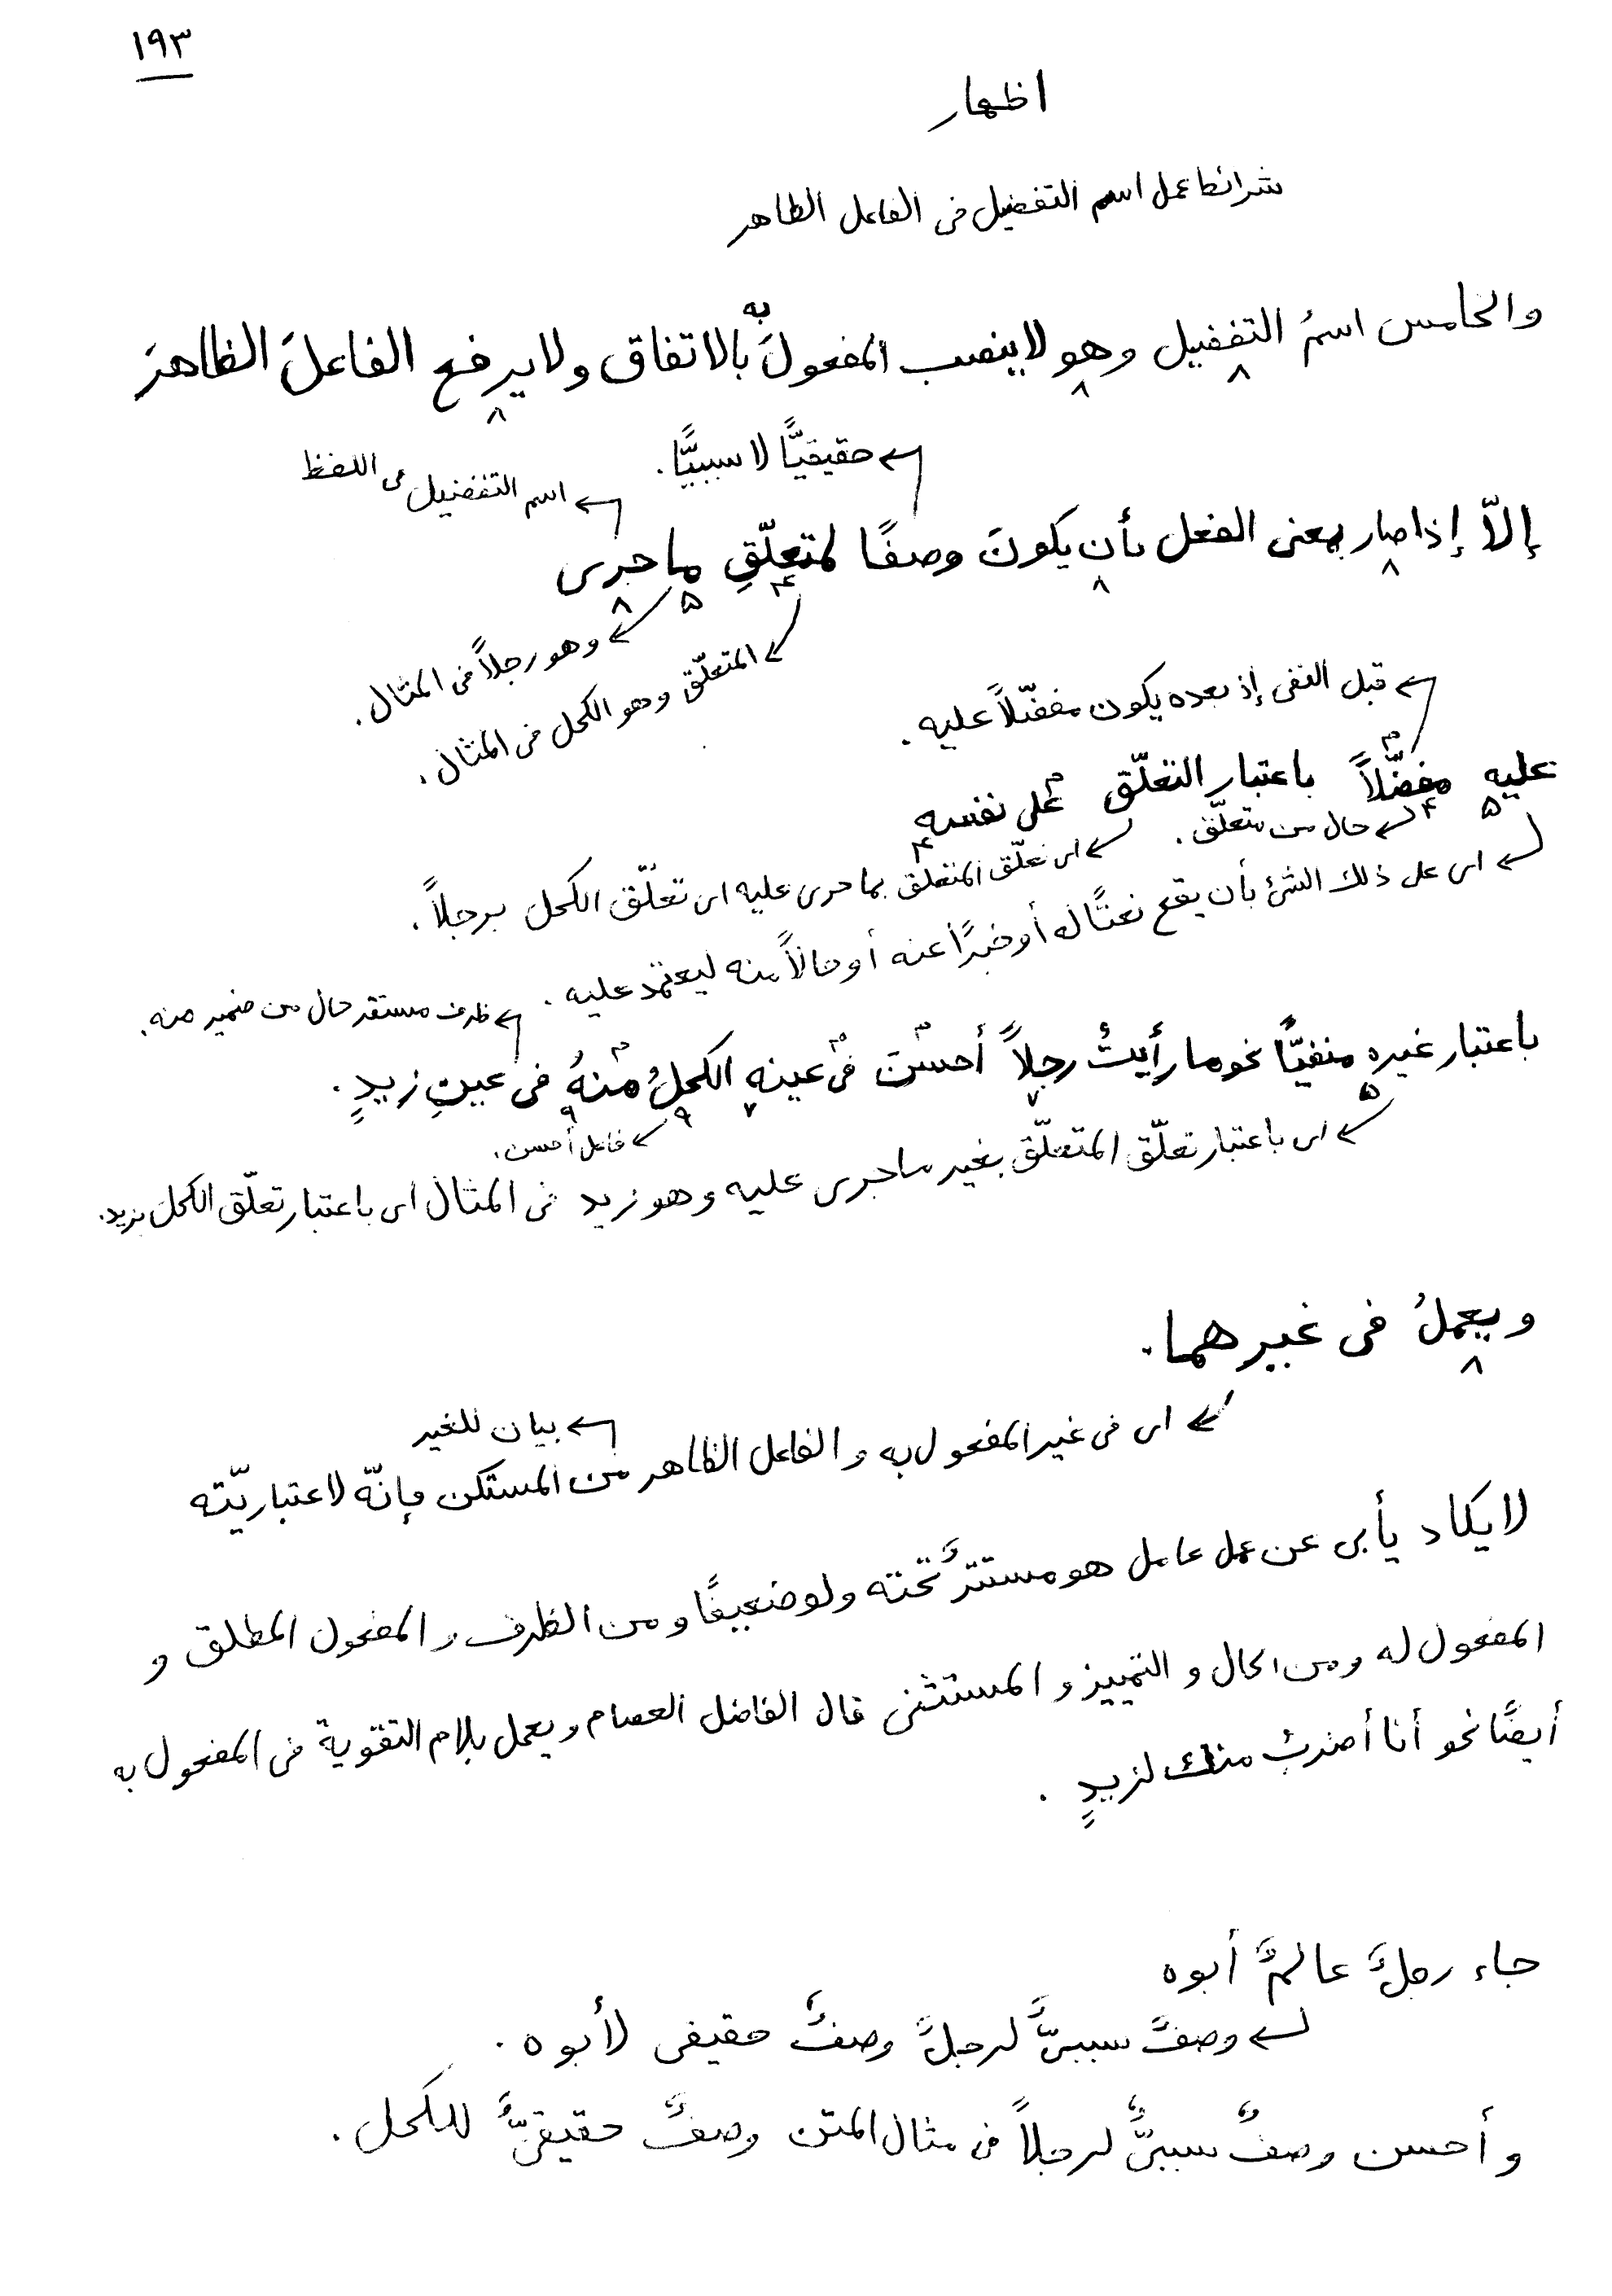 ١٩٣
اظهار
شرائط عمل اسم التفضيل فى الفاعل الظاهر
والخامس اسمُ التفضيل وهو لا ينصب المفعولَ به بالاتفاق ولا يرفع الفاعلَ الظاهرَ
حقيقيًّا لا سببيًّا.
اسم التفضيل فى اللفظ
إلاّ إذا صار بمعنى الفعل بأن يكونَ وصفًا لمتعلّقِ ما جرى
وهو رجلاً فى المثال.
المتعلّق وهو الكحل فى المثال.
قبل النفى إذ بعده يكون مفضّلاً عليه.
عليه مفضّلاً باعتبار التعلّق على نفسه
حال من متعلّق.
اى تعلّق المتعلق بما جرى عليه اى تعلّق الكحل برجلاً.
اى على ذلك الشئ بأن يقع نعتًا له أو خبرًا عنه أو حالاً منه ليعتمد عليه.
ظرف مستقر حال من ضمير منه.
باعتبار غيره منفيًّا نحو ما رأيتُ رجلاً أحسنَ فى عينهِ الكحلُ منهُ فى عينِ زيدٍ.
فاعل أحسن.
اى باعتبار تعلّق المتعلّق بغير ما جرى عليه وهو زيد فى المثال اى باعتبار تعلّق الكحل بزيد.
ويعملُ فى غيرهما.
اى فى غير المفعول به والفاعل الظاهر من المستكن فإنّه لاعتباريّته
بيان للغير
لا يكاد يأبى عن عمل عامل هو مستترٌ تحته ولو ضعيفًا ومن الظرف والمفعول المطلق و
المفعول له ومن الحال والتمييز والمستثنى قال الفاضل العصام ويعمل بلام التقوية فى المفعول به
أيضًا نحو أنا أضربُ منك لزيدٍ.
جاء رجلٌ عالمٌ أبوه
وصفٌ سببىٌّ لرجلٌ وصفٌ حقيقى لأبوه.
و أحسن وصفٌ سببىٌّ لرجلاً فى مثال المتن وصفٌ حقيقىٌّ للكحل.